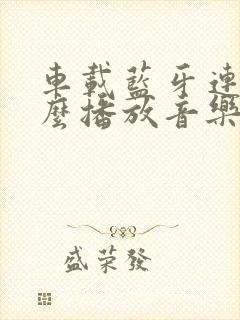 車載藍牙連
麼播放音樂
盛荣發